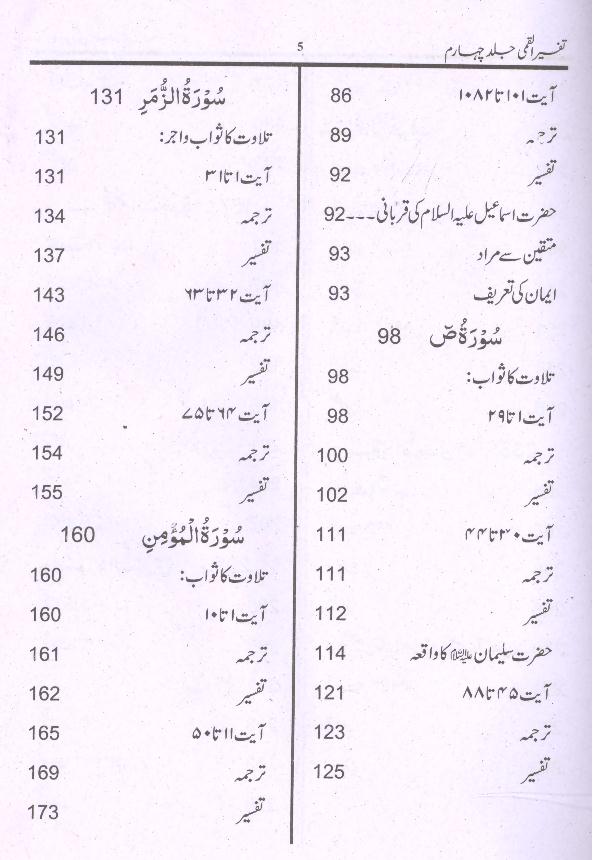 تفسیر القمی جلد چہارم 5
آیت ۱۰۱ تا ۱۰۸۲ 86
ترجمہ 89
تفسیر 92
حضرت اسماعیل علیہ السلام کی قربانی ۔۔۔ 92
متقین سے مراد 93
ایمان کی تعریف 93
سُوۡرَۃُ صٓ 98
تلاوت کا ثواب: 98
آیت ۱ تا ۲۹ 98
ترجمہ 100
تفسیر 102
آیت ۳۰ تا ۴۴ 111
ترجمہ 111
تفسیر 112
حضرت سلیمان علیہ السلام کا واقعہ 114
آیت ۴۵ تا ۸۸ 121
ترجمہ 123
تفسیر 125
سُوۡرَۃُ الزُّمَرِ 131
تلاوت کا ثواب و اجر: 131
آیت ۱ تا ۳۱ 131
ترجمہ 134
تفسیر 137
آیت ۳۲ تا ۶۳ 143
ترجمہ 146
تفسیر 149
آیت ۶۴ تا ۷۵ 152
ترجمہ 154
تفسیر 155
سُوۡرَۃُ الۡمُؤۡمِنِ 160
تلاوت کا ثواب: 160
آیت ۱ تا ۱۰ 160
ترجمہ 161
تفسیر 162
آیت ۱۱ تا ۵۰ 165
ترجمہ 169
تفسیر 173